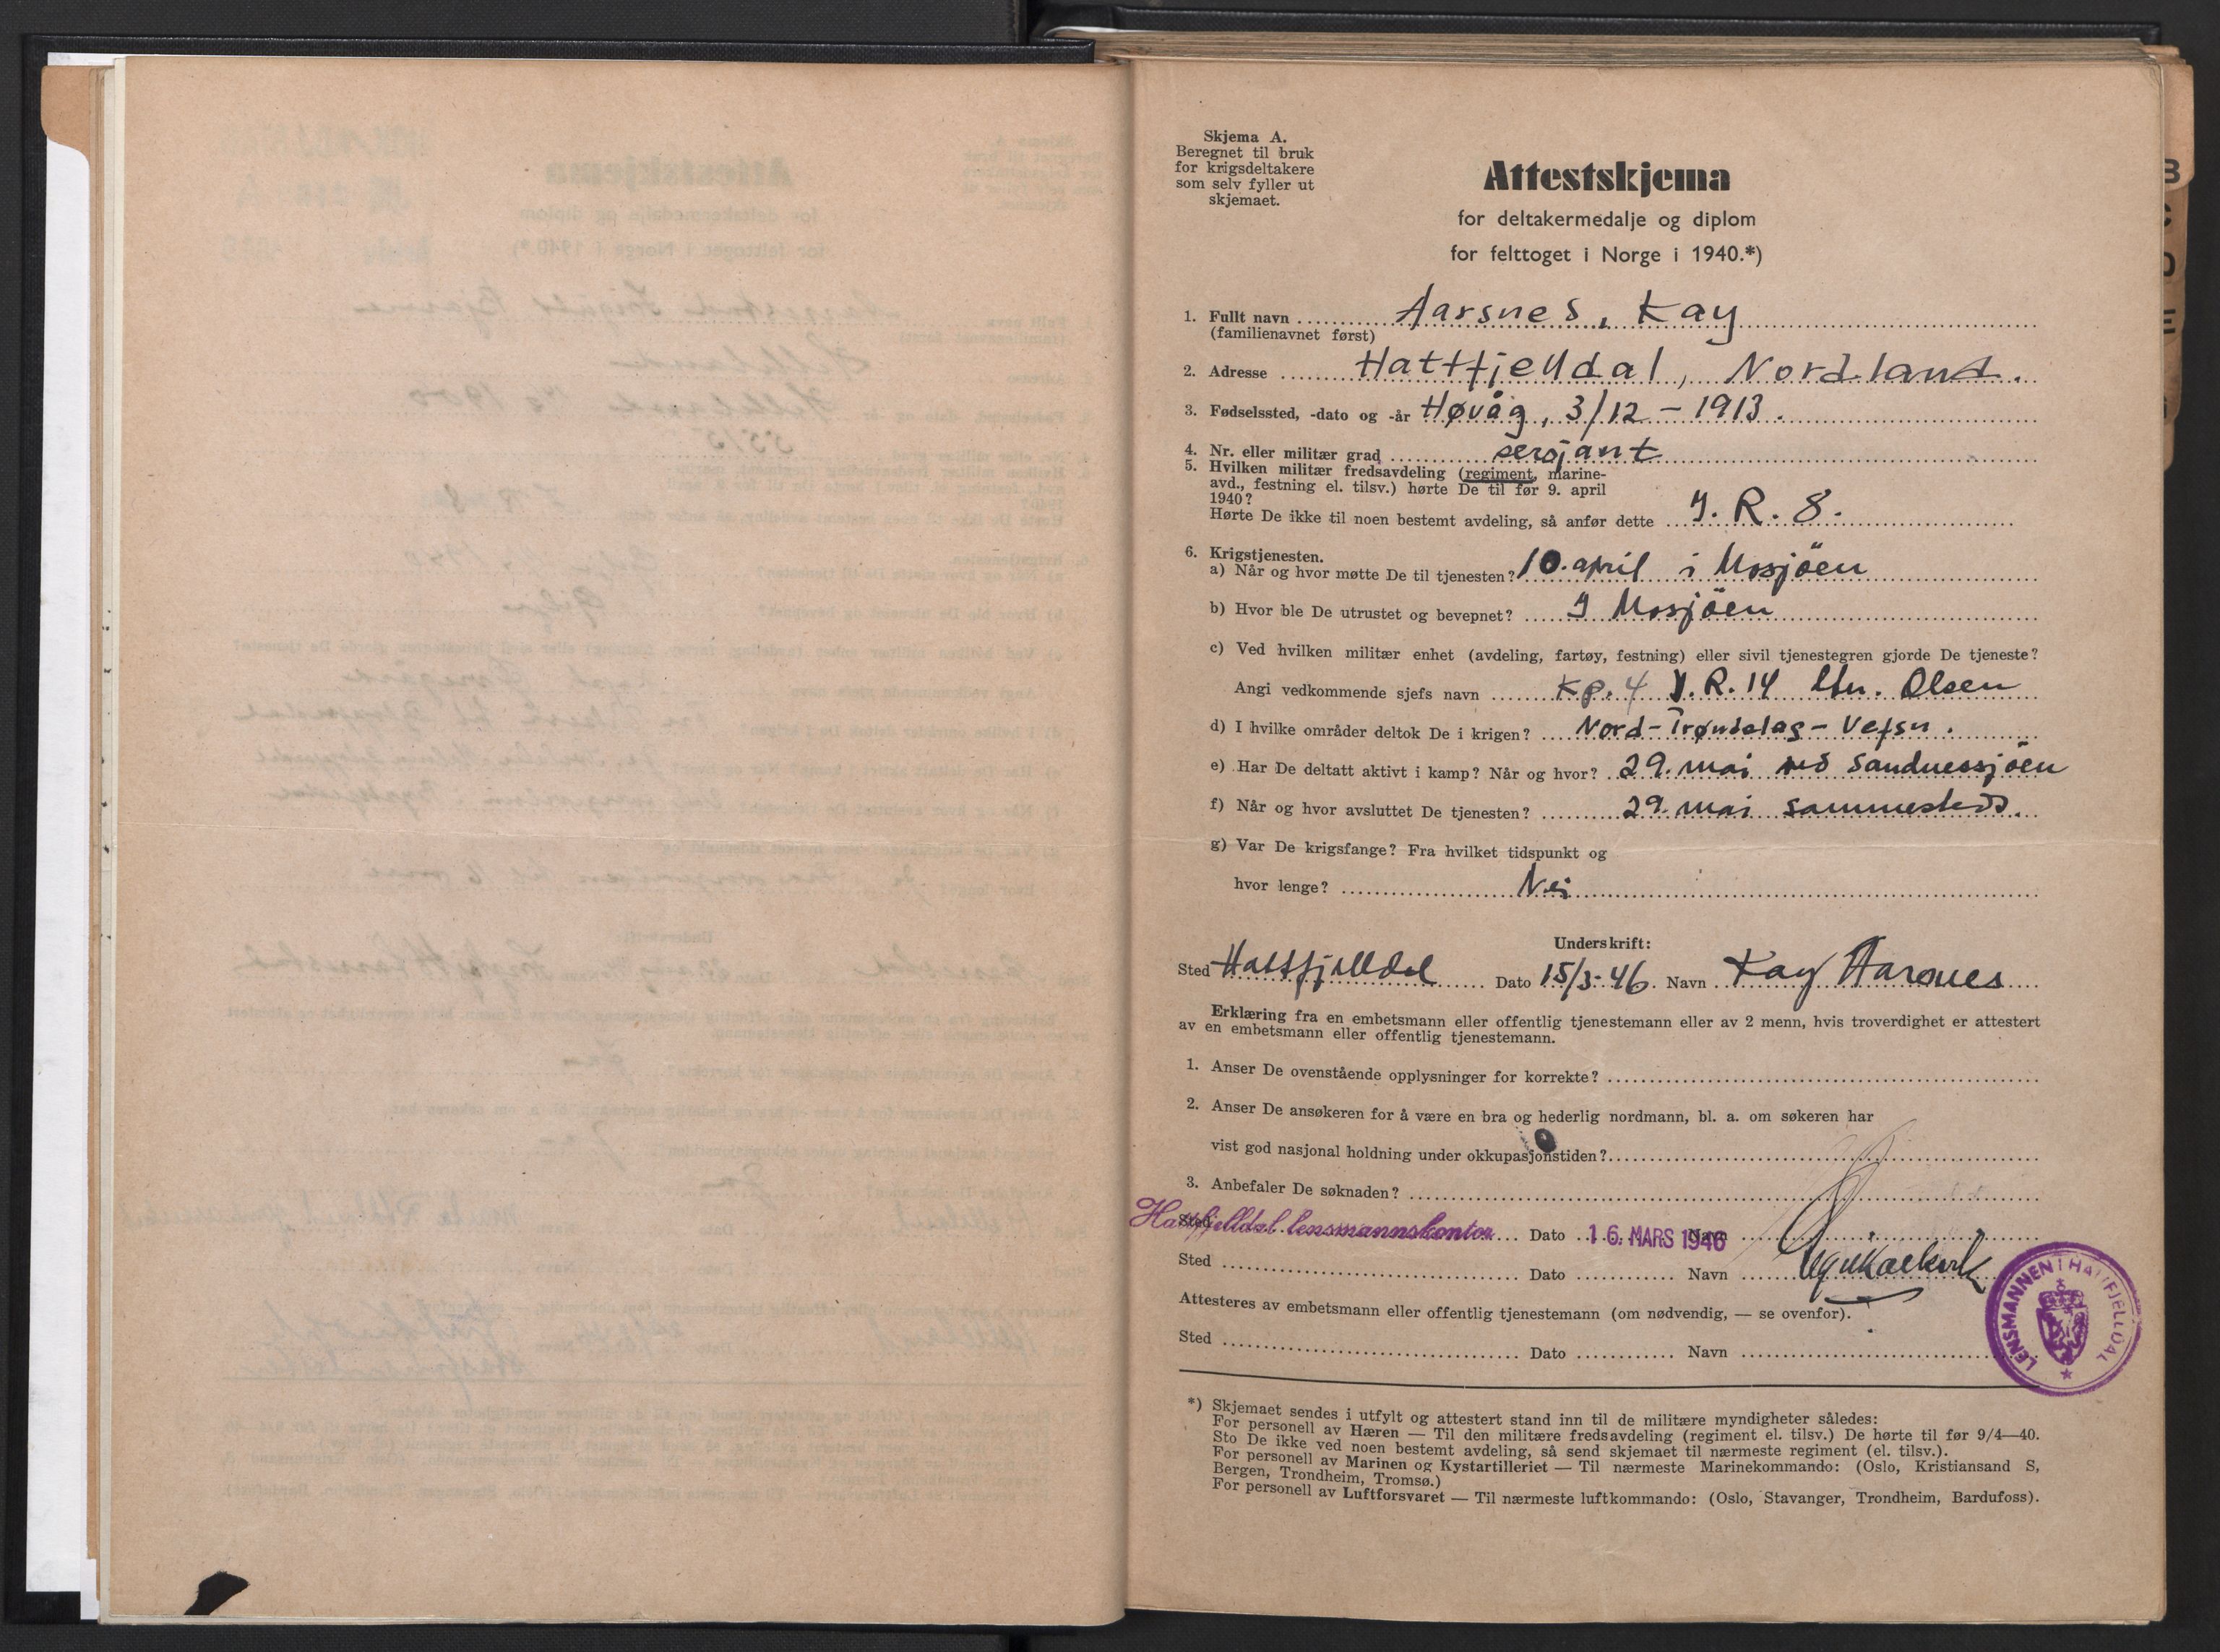 Skjema A.
Beregnet til bruk
for krigsdeltakere
som selv fyller ut
skjemaet.
Attestskjema
for deltakermedalje og diplom
for felttoget i Norge i 1940.*)
1. Fullt navn Aarsnes, Kay
(familienavnet først)
2. Adresse Hattfjelldal, Nordland.
3. Fødselssted, -dato og -år Høvåg, 3/12 - 1913.
4. Nr. eller militær grad sersjant
5. Hvilken militær fredsavdeling (regiment, marine-
avd., festning el. tilsv.) hørte De til før 9. april
1940?
Hørte De ikke til noen bestemt avdeling, så anfør dette I. R. 8.
6. Krigstjenesten.
a) Når og hvor møtte De til tjenesten? 10. april i Mosjöen
b) Hvor ble De utrustet og bevepnet? I Mosjöen
c) Ved hvilken militær enhet (avdeling, fartøy, festning) eller sivil tjenestegren gjorde De tjeneste?
Angi vedkommende sjefs navn Kp. 4 I.R. 14 Ltn. Olsen
d) I hvilke områder deltok De i krigen? Nord-Trøndelag - Vefsn.
e) Har De deltatt aktivt i kamp? Når og hvor? 29. mai ved Sandnessjöen
f) Når og hvor avsluttet De tjenesten? 29. mai sammesteds.
g) Var De krigsfange? Fra hvilket tidspunkt og
hvor lenge? Nei
Underskrift:
Sted Hattfjelldal Dato 15/3-46. Navn Kay Aarsnes
Erklæring fra en embetsmann eller offentlig tjenestemann eller av 2 menn, hvis troverdighet er attestert
av en embetsmann eller offentlig tjenestemann.
1. Anser De ovenstående opplysninger for korrekte?
2. Anser De ansøkeren for å være en bra og hederlig nordmann, bl. a. om søkeren har
vist god nasjonal holdning under okkupasjonstiden?
3. Anbefaler De søknaden?
Sted Hattfjelldal lensmannskontor Dato 16. MARS 1946 Navn
Sted Dato Navn
Attesteres av embetsmann eller offentlig tjenestemann (om nødvendig, — se ovenfor).
Sted Dato Navn
LENSMANNEN I HATTFJELLDAL
*) Skjemaet sendes i utfylt og attestert stand inn til de militære myndigheter således:
For personell av Hæren — Til den militære fredsavdeling (regiment el. tilsv.) De hørte til før 9/4—40.
Sto De ikke ved noen bestemt avdeling, så send skjemaet til nærmeste regiment (el. tilsv.).
For personell av Marinen og Kystartilleriet — Til nærmeste Marinekommando: (Oslo, Kristiansand S,
Bergen, Trondheim, Tromsø.)
For personell av Luftforsvaret — Til nærmeste luftkommando: (Oslo, Stavanger, Trondheim, Bardufoss).
B
C
D
E